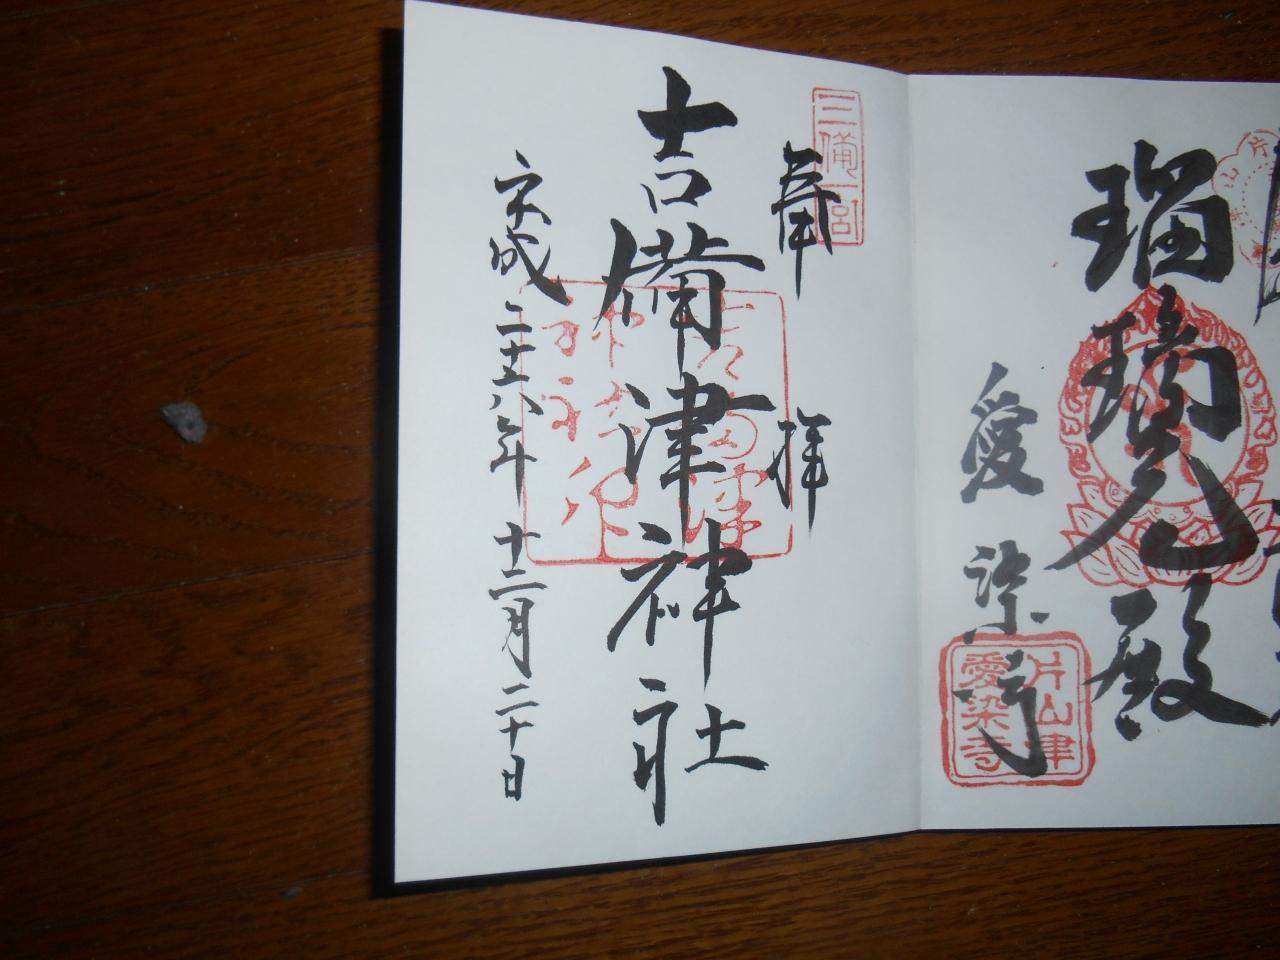 瑠璃光殿
愛染寺
片山津
愛染寺
三備一宮
奉拝
吉備津神社
平成二十六年十二月二十日